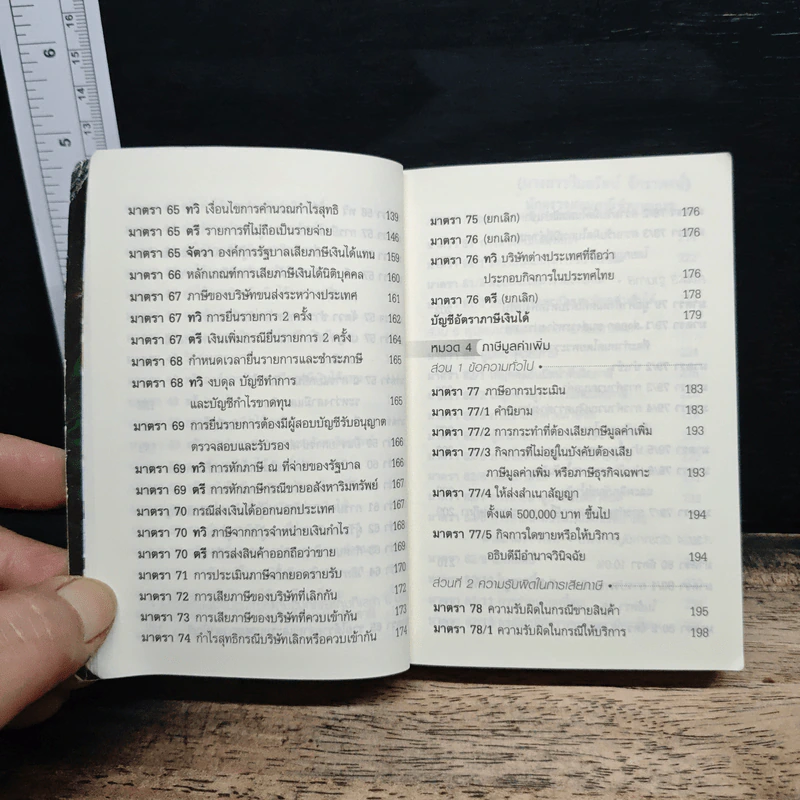 มาตรา 65 ทวิ เงื่อนไขการคำนวณกำไรสุทธิ 139
มาตรา 65 ตรี รายการที่ไม่ถือเป็นรายจ่าย 146
มาตรา 65 จัตวา องค์การรัฐบาลเสียภาษีเงินได้แทน 159
มาตรา 66 หลักเกณฑ์การเสียภาษีเงินได้นิติบุคคล 160
มาตรา 67 ภาษีของบริษัทขนส่งระหว่างประเทศ 161
มาตรา 67 ทวิ การยื่นรายการ 2 ครั้ง 162
มาตรา 67 ตรี เงินเพิ่มกรณียื่นรายการ 2 ครั้ง 164
มาตรา 68 กำหนดเวลายื่นรายการและชำระภาษี 165
มาตรา 68 ทวิ งบดุล บัญชีทำการ
และบัญชีกำไรขาดทุน 165
มาตรา 69 การยื่นรายการต้องมีผู้สอบบัญชีรับอนุญาต
ตรวจสอบและรับรอง 166
มาตรา 69 ทวิ การหักภาษี ณ ที่จ่ายของรัฐบาล 166
มาตรา 69 ตรี การหักภาษีกรณีขายอสังหาริมทรัพย์ 167
มาตรา 70 กรณีส่งเงินได้ออกนอกประเทศ 167
มาตรา 70 ทวิ ภาษีจากการจำหน่ายเงินกำไร 168
มาตรา 70 ตรี การส่งสินค้าออกถือว่าขาย 169
มาตรา 71 การประเมินภาษีจากยอดรายรับ 170
มาตรา 72 การเสียภาษีของบริษัทที่เลิกกัน 172
มาตรา 73 การเสียภาษีของบริษัทที่ควบเข้ากัน 173
มาตรา 74 กำไรสุทธิกรณีบริษัทเลิกหรือควบเข้ากัน 174
มาตรา 75 (ยกเลิก) 176
มาตรา 76 (ยกเลิก) 176
มาตรา 76 ทวิ บริษัทต่างประเทศที่ถือว่า
ประกอบกิจการในประเทศไทย 176
มาตรา 76 ตรี (ยกเลิก) 178
บัญชีอัตราภาษีเงินได้ 179
หมวด 4 ภาษีมูลค่าเพิ่ม
ส่วน 1 ข้อความทั่วไป •
มาตรา 77 ภาษีอากรประเมิน 183
มาตรา 77/1 คำนิยาม 183
มาตรา 77/2 การกระทำที่ต้องเสียภาษีมูลค่าเพิ่ม 193
มาตรา 77/3 กิจการที่ไม่อยู่ในบังคับต้องเสีย
ภาษีมูลค่าเพิ่ม หรือภาษีธุรกิจเฉพาะ 193
มาตรา 77/4 ให้ส่งสำเนาสัญญา
ตั้งแต่ 500,000 บาท ขึ้นไป 194
มาตรา 77/5 กิจการใดขายหรือให้บริการ
อธิบดีมีอำนาจวินิจฉัย 194
ส่วนที่ 2 ความรับผิดในการเสียภาษี •
มาตรา 78 ความรับผิดในกรณีขายสินค้า 195
มาตรา 78/1 ความรับผิดในกรณีให้บริการ 198
6
5
16
15
14
13